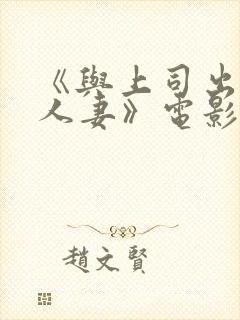 《與上司出
人妻》電影
趙文賢